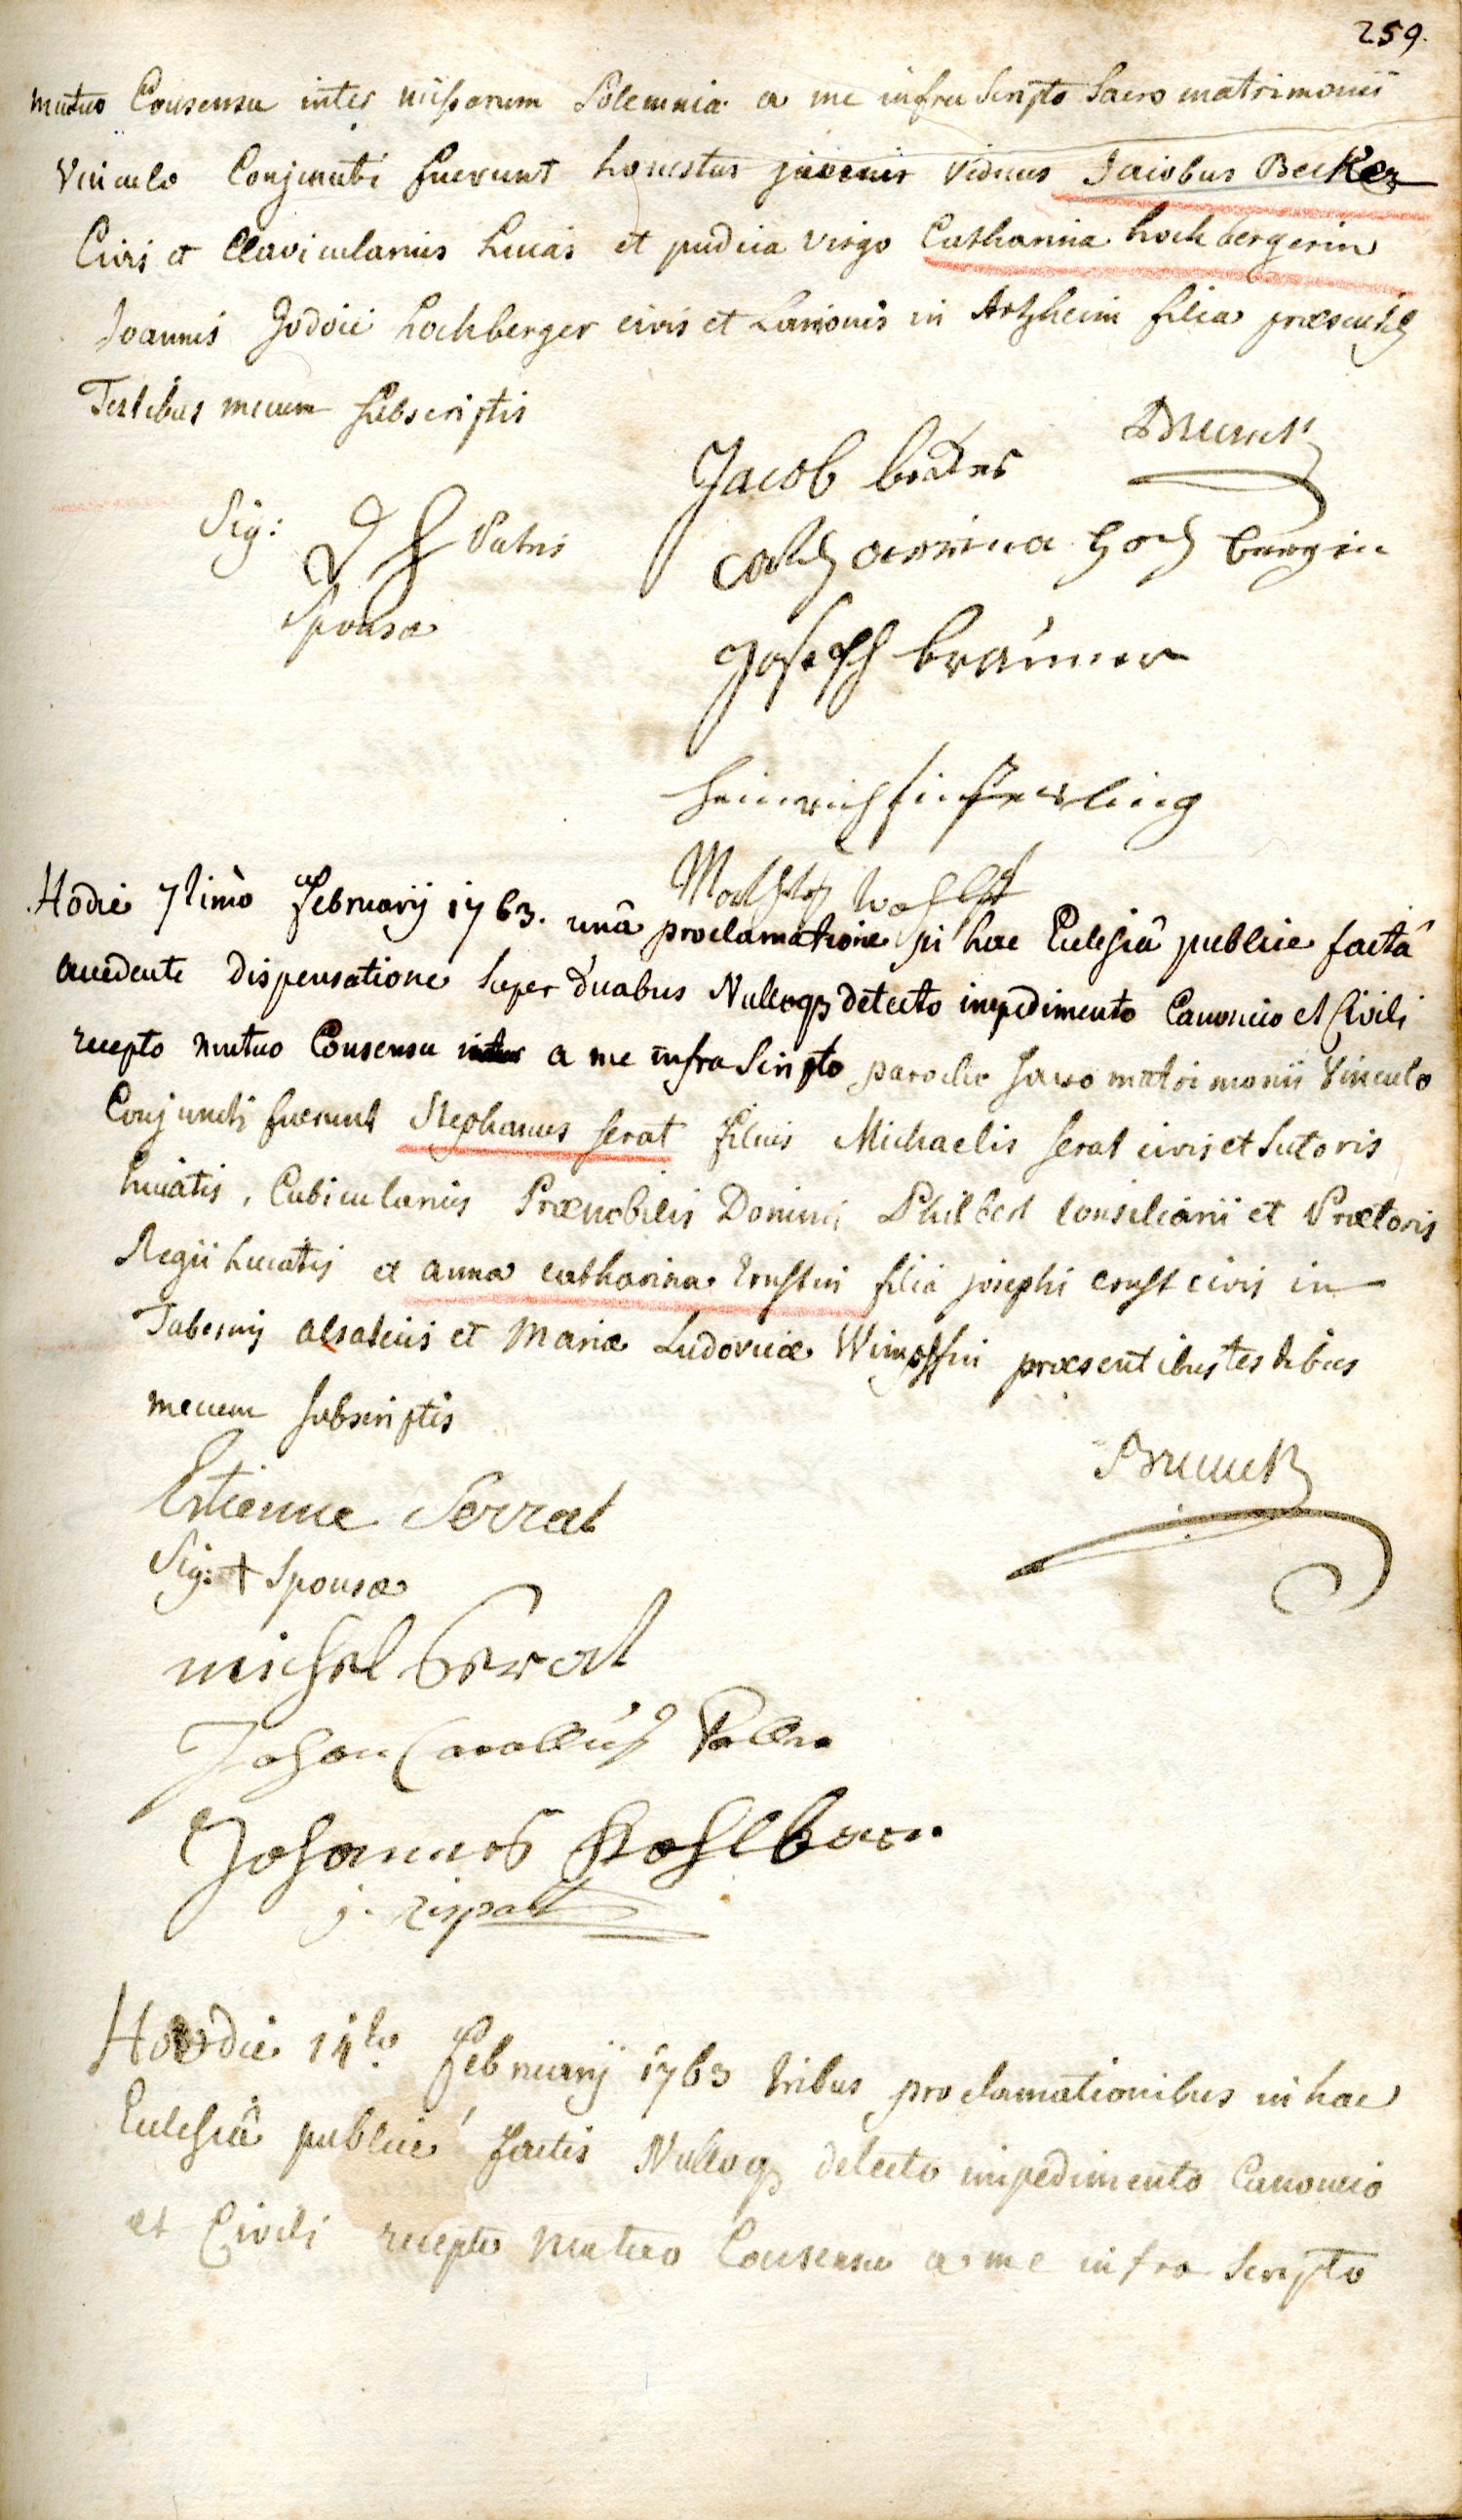 259.
mutuo Consensu inter missarum Solemnia a me infra Scripto Sacro matrimonii
Vinculo Conjuncti fuerunt honestus juvenis viduus Jacobus Becker
Civis et Clavicularius hucas et pudica virgo Catharina hochbergerin
Joannis Jodoci hochberger civis et Lanionis in Artzheim filia præsentib9
Testibus mecum subscriptis
Brunck
Jacob becker
Sig: J H Patris
Sponsæ
Catharina Hoch bergin
Joseph Brauner
Heinrich
Hodie 7timo februarij 1763. unâ proclamatione in hac Ecclesiâ publice factâ
accedente dispensatione super duabus Nulloq3 detecto impedimento Canonico et Civili
recepto mutuo Consensu a me infra Scripto parocho sacro matrimonii Vinculo
Conjuncti fuerunt Stephanus serat filius Michaelis serat civis et sutoris
hucatis, Cubicularius Prænobilis Domini Philbert Consiliarii et Prætoris
Regii hucatis et anna catharina Ernstin filia josephi ernst civis in
Tabernis alsaticis et Mariæ Ludovicæ Wimpffin præsentibus testibus
mecum subscriptis
Brunck
Estienne Serrat
Sig: + Sponsæ
michel Serrat
Johan
Johannes Kohlbaur
Hodie 14to februarij 1763 tribus proclamationibus in hac
Ecclesiâ publicé factis Nulloq3 detecto impedimento Canonico
et Civili recepto Mutuo Consensu a me infra Scripto